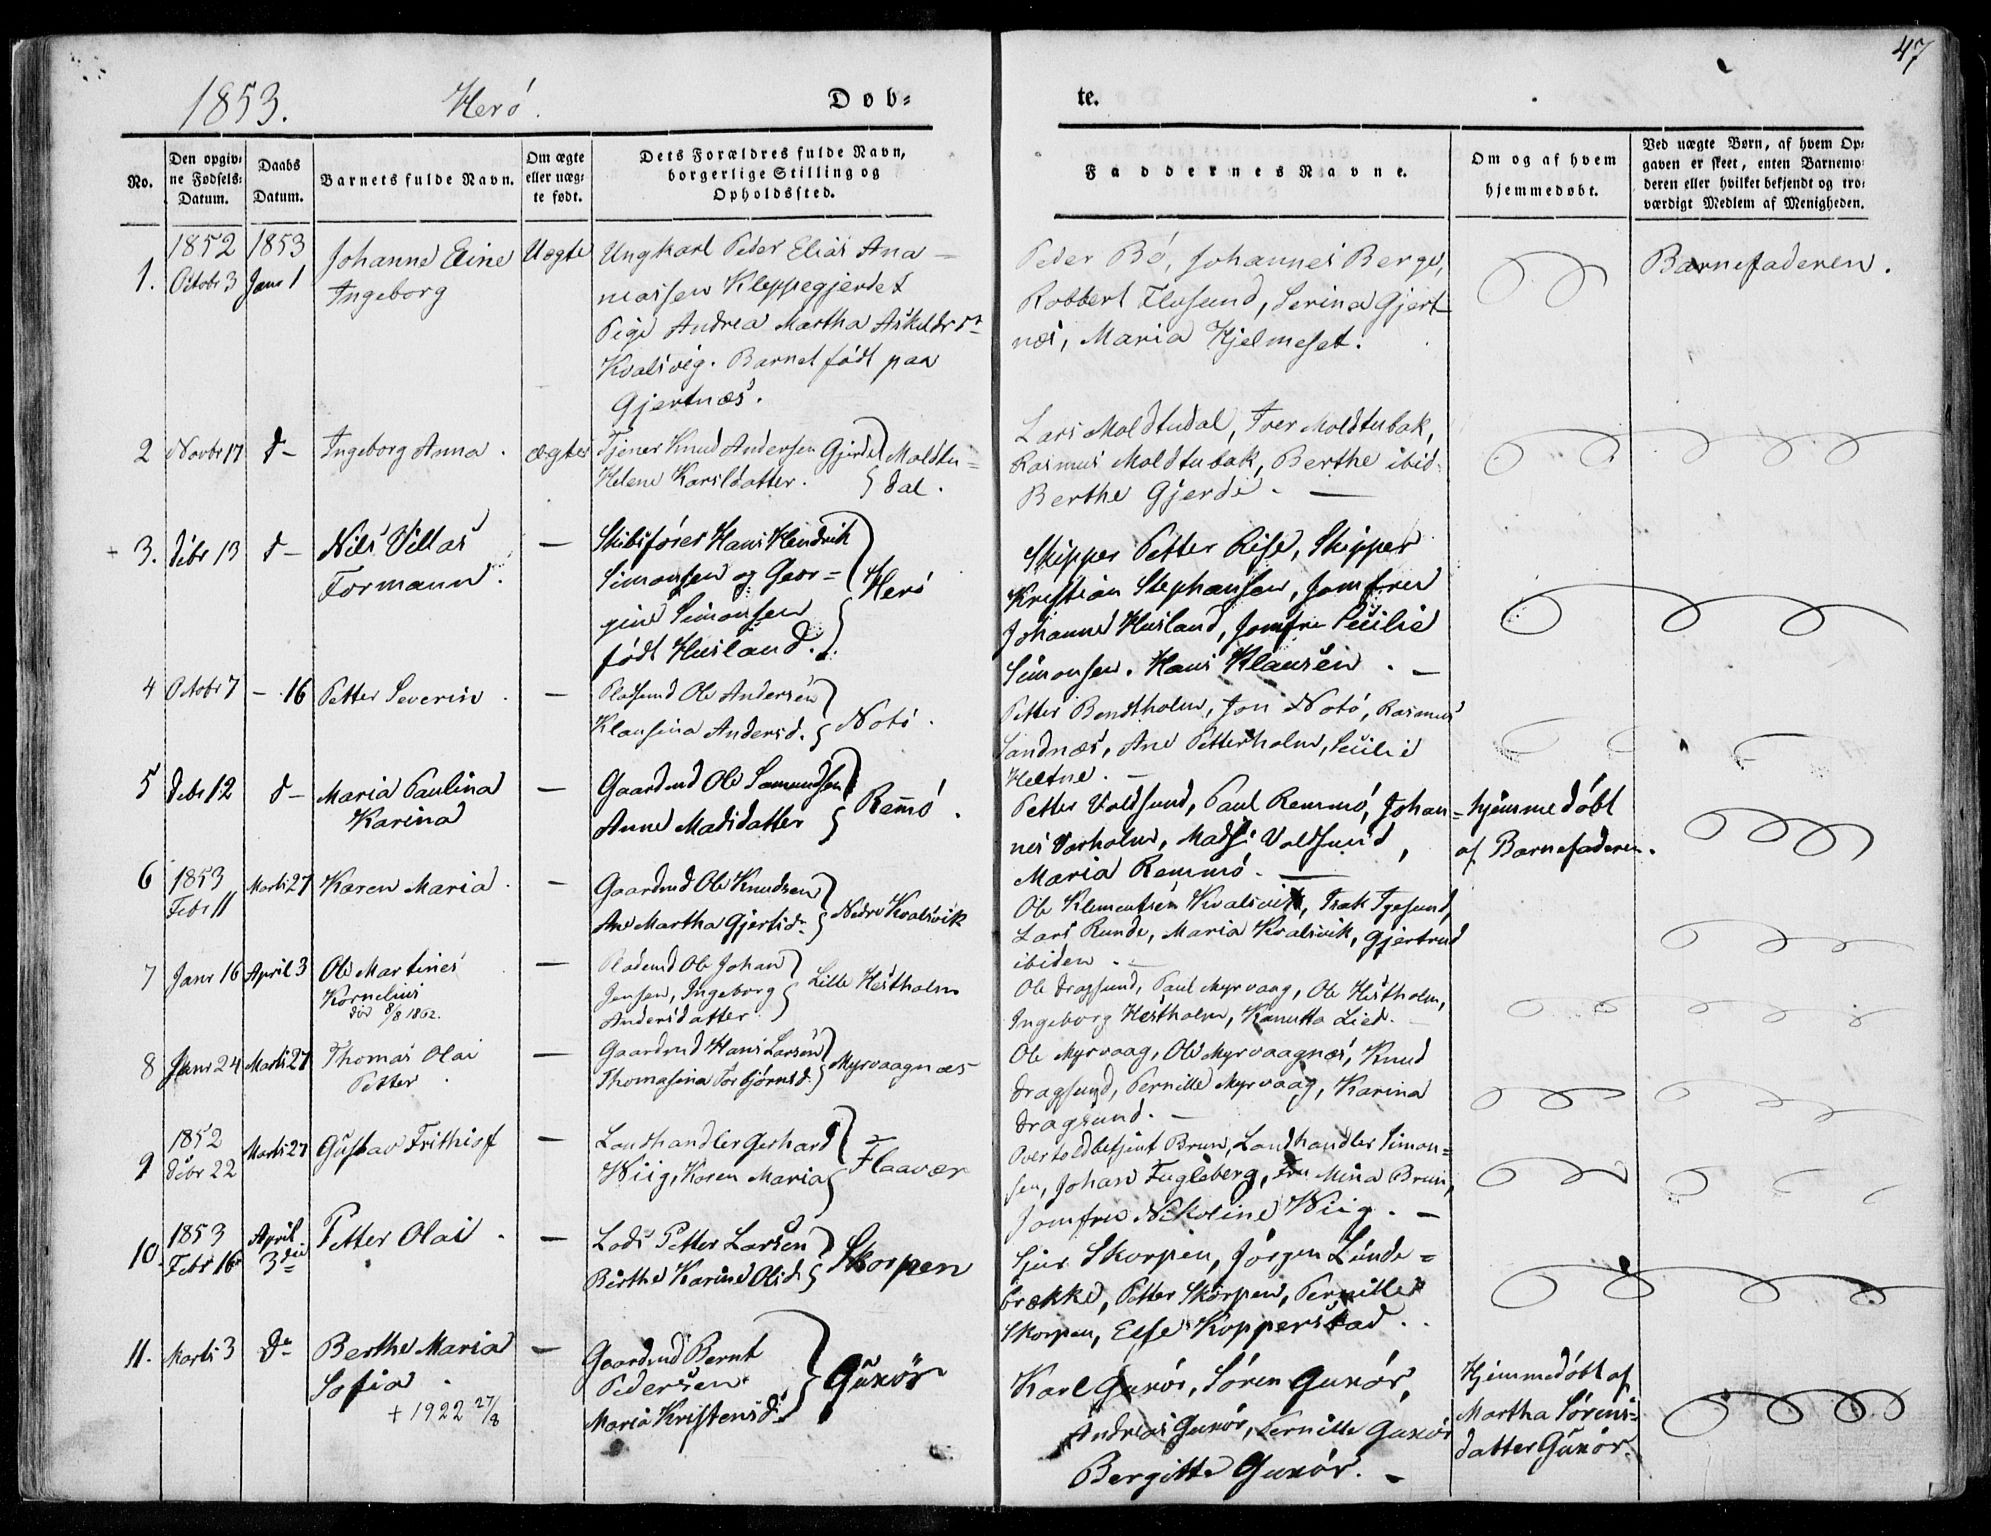 47
1853. Herö. Dob- te.
No.
Den opgiv-
ne Fødsels-
Datum.
Daabs
Datum.
Barnets fulde Navn.
Om ægte
eller uæg-
te født.
Dets Forældres fulde Navn,
borgerlige Stilling og
Opholdssted.
Faddernes Navne.
Om og af hvem
hjemmedøbt.
Ved uægte Børn, af hvem Op-
gaven er skeet, enten Barnemo-
deren eller hvilket bekjendt og tro-
værdigt Medlem af Menigheden.
1.
1852
Octobr 3
1853
Janr 1
Johanne Eline
Ingeborg
Uægte
Ungkarl Peder Elias Ana-
niassen Kleppegjerdet
Pige Andrea Martha Askildsdr
Kvalsvig. Barnet født paa
Gjertnæs.
Peder Bö, Johannes Berge,
Robbert Flusund, Serina Gjert-
næs, Maria Hjelmeset.
Barnefaderen.
2
Novbr 17
d-
Ingeborg Anna.
ægte
Tjener Knud Andersen Gjerde
Helene Karlsdatter.
Moldtu-
dal.
Lars Moldtudal, Iver Moldtubak,
Rasmus Moldtubak, Berthe ibid.
Berthe Gjerde. -
+ 3.
Debr 13
d-
Nils Villas
Formann.
-
Skibsfører Hans Hendrik
Simonsen og Geor-
gine Simonsen
født Husland.
Herö
Skipper Petter Rise, Skipper
Kristian Stephansen, Jomfru
Johanne Husland, Jomfru Cecilie
Simonsen. Hans Klausen. -
4
Octobr 7
- 16
Petter Severin.
-
Pladsmd Ole Andersen
Klausina Andersd.
Notö.
Petter Bondtholm, Jon Notö, Rasmus
Sandnæs, Ane Petterholm, Cecilie
Heltne. -
5
Debr 12
d-
Maria Paulina
Karina
-
Gaardmd Ole Samundsen
Anne Madsdatter
Remö.
Petter Voldsund, Paul Remmö, Johan-
nes Vorholm, Mads Voldsund,
Maria Remmö. -
hjemmedöbt
af Barnefaderen.
6
1853
Febr 11
Marts 27
Karen Maria.
-
Gaardmd Ole Knudsen
Ane Martha Gjertsd.
Nedre Kvalsvik
Ole Klementsen Kvalsvik, Isak Igesund,
Lars Runde, Maria Kvalsvik, Gjertrud
ibiden. -
7
Janr 16
April 3
Ole Martines
Kornelius
död 8/8 1862.
-
Pladsmd Ole Johan
Jensen, Ingeborg
Andersdatter
Lille Hestholm
Ole Dragsund, Paul Myrvaag, Ole Hestholm,
Ingeborg Hestholm, Kanutta Lied. -
8
Janr 24
Marts 27
Thomas Olai
Petter.
-
Gaardmd Hans Larsen
Thomasina Torbjörnsd.
Myrvaagnæs
Ole Myrvaag, Ole Myrvaagnæs, Knud
Dragsund, Pernille Myrvaag, Karina
Dragsund. -
9
1852
Debr 22
Marts 27
Gustav Frithiof
-
Landhandler Gerhard
Wiig, Karen Maria
Flaavær
Overtoldbetjent Brun, Landhandler Simon-
sen, Johan Fugleberg, Fru Mina Brun,
Jomfru Nikoline Wiig. -
10.
1853
Febr 16
April
3die
Petter Olai.
-
Lods Petter Larsen
Birthe Karine Olsd.
Skorpen
Sjur Skorpen, Jörgen Lunde-
brække, Petter Skorpen, Pernille
Skorpen, Else Kopperstad.
11.
Marts 3
do
Berthe Maria
Sofia.
+ 1922 27/8
-
Gaardmd Bernt
Pedersen
Maria Kristensd.
Gurör
Karl Gurör, Sören Gurör,
Andreas Gurör, Pernille Gurör
Bergitte Gurör. -
Hjemmedöbt af
Martha Sörens-
datter Gurör.